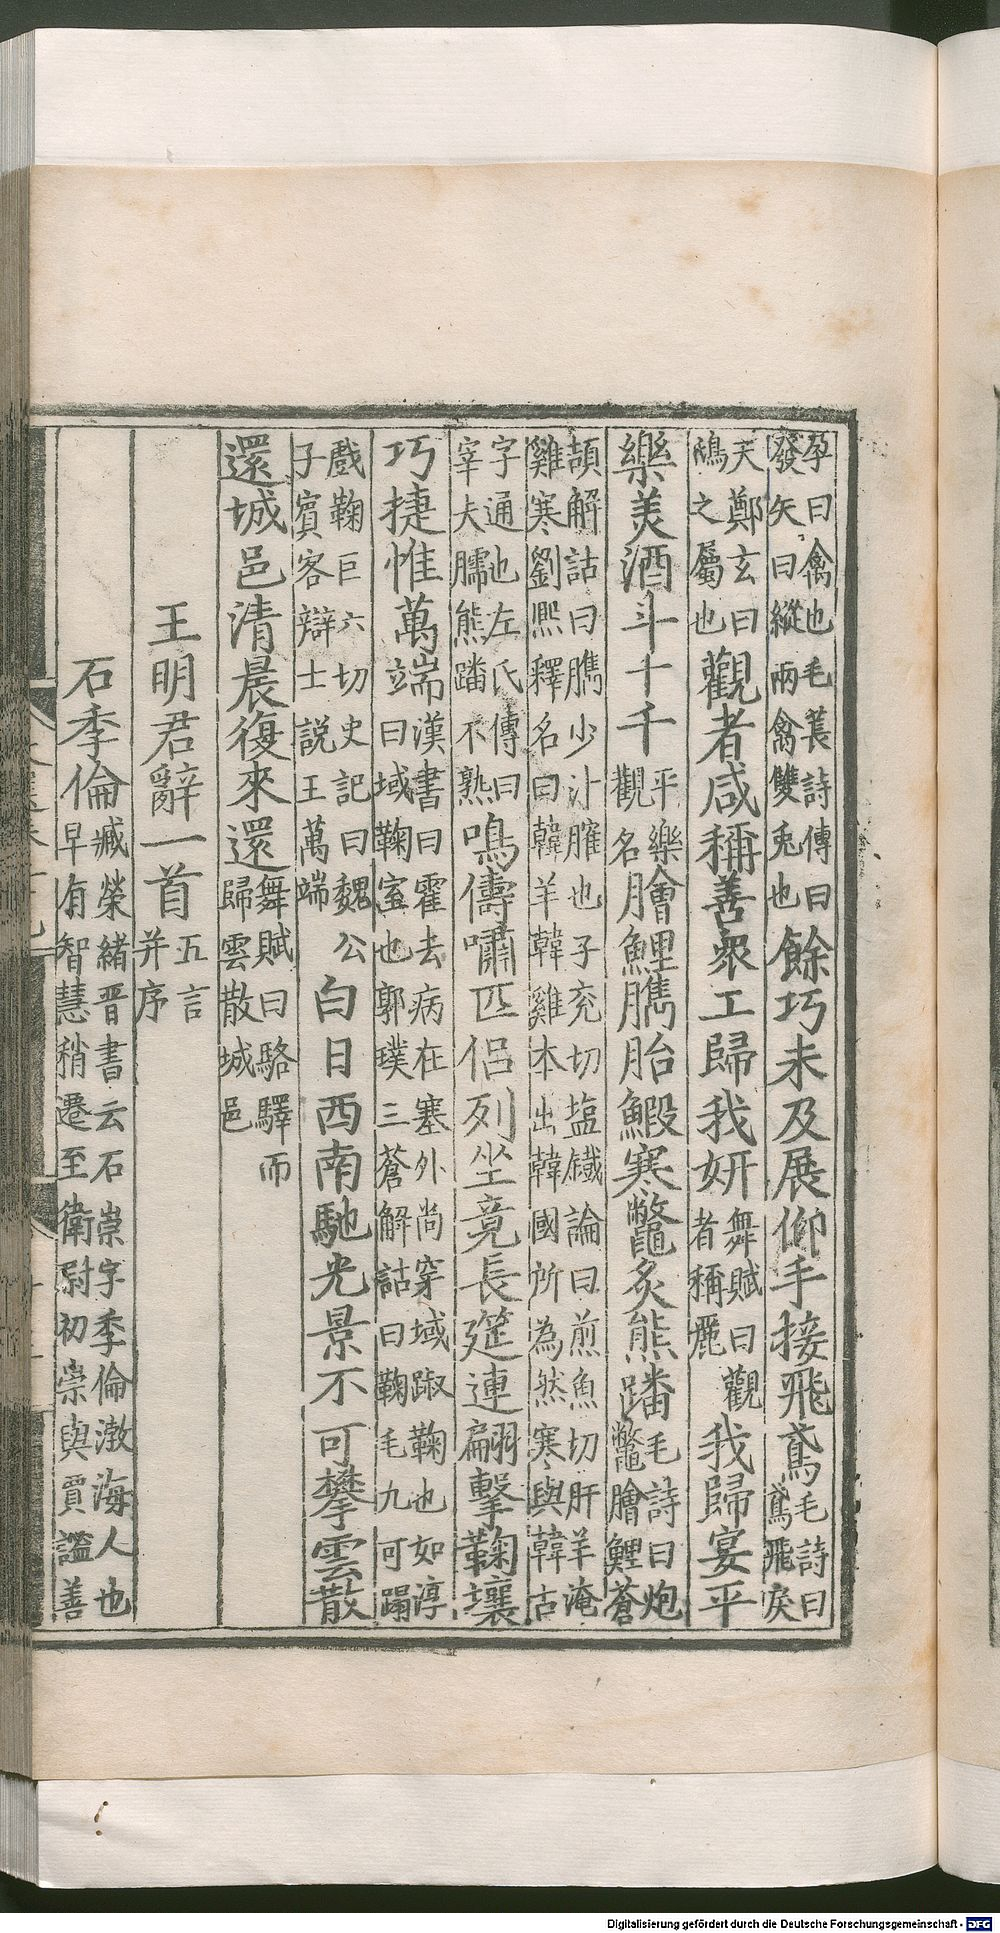 孕曰禽也毛萇詩傳曰發矢曰縱兩禽雙兔也餘巧未及展仰手接飛鳶毛詩曰鳶飛戾
天鄭玄曰鴟之屬也觀者咸稱善衆工歸我妍舞賦曰觀者稱麗我歸宴平
樂美酒斗十千平樂觀名膾鯉臇胎鰕寒鼈炙熊蹯毛詩曰炮鼈膾鯉蒼
頡解詁曰臇少汁臛也子兖切塩鐵論曰煎魚切肝羊淹雞寒劉熙釋名曰韓羊韓雞本出韓國所為然寒與韓古
字通也左氏傳曰宰夫臑熊蹯不熟鳴儔嘯匹侶列坐竟長筵連翩擊鞠壤
巧捷惟萬端漢書曰霍去病在塞外尚穿域踧鞠也如淳曰域鞠室也郭璞三蒼解詁曰鞠毛九可蹋
戲鞠巨六切史記曰魏公子賓客辯士説王萬端白日西南馳光景不可攀雲散
還城邑清晨復來還舞賦曰駱驛而歸雲散城邑
王明君辭一首五言并序
石季倫臧榮緒晋書云石崇字季倫渤海人也早有智慧稍遷至衛尉初崇與賈謐善
Digitalisierung gefördert durch die Deutsche Forschungsgemeinschaft - DFG